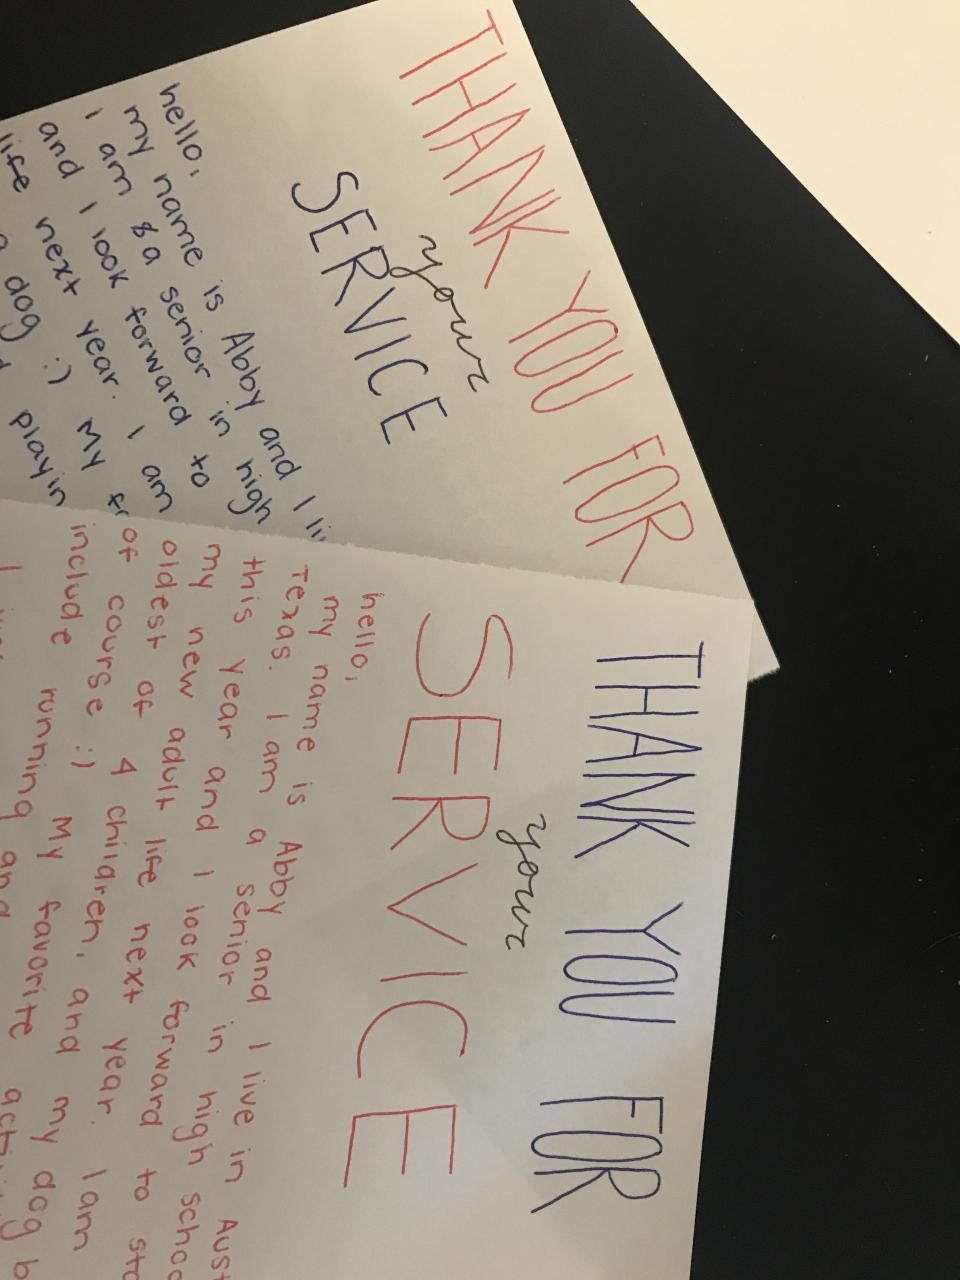 THANK YOU FOR
your
SERVICE
hello,
my name is Abby and I
I am a senior in high
and I look forward to
life next year. I am
dog :) My
playin
THANK YOU FOR
your
SERVICE
hello,
my name is Abby and I live in
Texas. I am a senior in high
this year and I look forward to
my new adult life next year. I am
oldest of 4 children, and my dog
of course :) My favorite
include running and